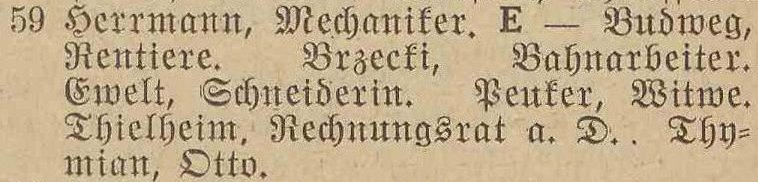 59 Herrmann, Mechaniker. E — Budweg,
Rentiere. Brzecki, Bahnarbeiter.
Ewelt, Schneiderin. Peuker, Witwe.
Thielheim, Rechnungsrat a. D.. Thy=
mian, Otto.